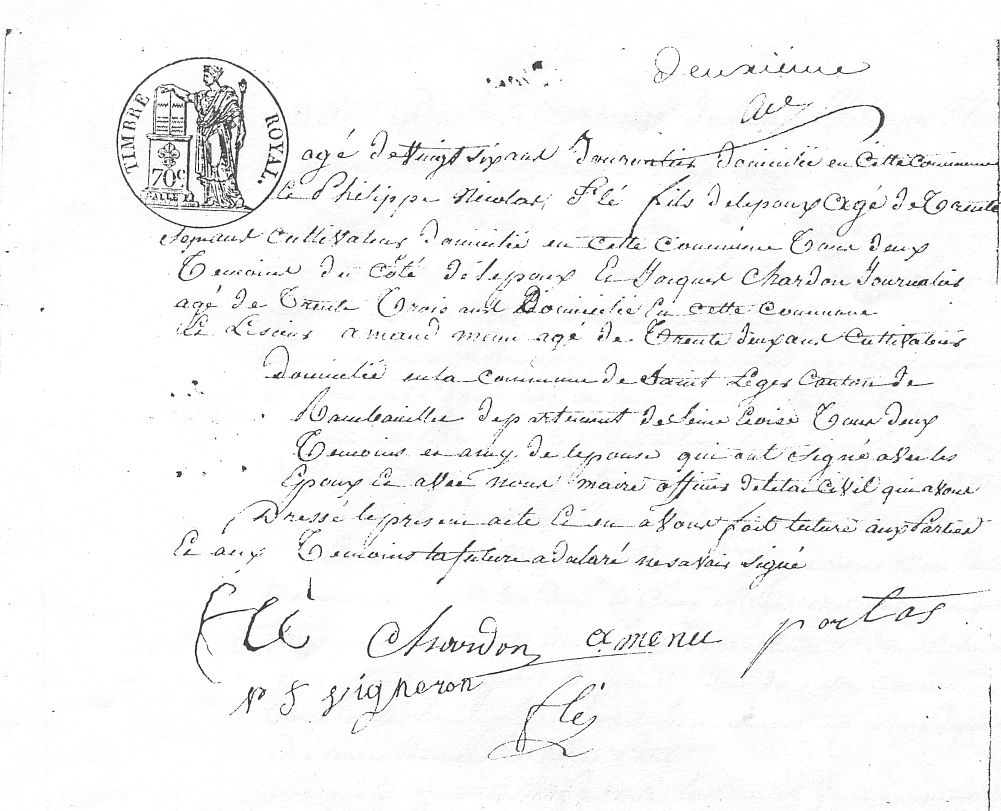 deuxième
TIMBRE ROYAL.
70c
agé de Vingt Six ans Journalier domicilié en cette Commune
Le Philippe Nicolas Flé fils de lepoux agé de Trente
Sept ans Cultivateur domicilié en cette Commune Tous deux
Temoins du côté de lepoux Et Jacques Chardon Journalier
agé de Trente Trois ans Domicilié En cette Commune
amand menu agé de Trente deux ans Cultivateur
domicilié en la Commune de Saint Leger Canton de
Rambouillet departement de Seine et oise Tous deux
Temoins et amy de lepouse qui ont Signé avec les
Epoux Et avec nous maire officier de letat Civil qui avons
Dressé le present acte Et en avons fait lecture aux Parties
Et aux Temoins la future a declaré ne savoir Signé
Flé Chardon amenu portas
Vigneron
Flé